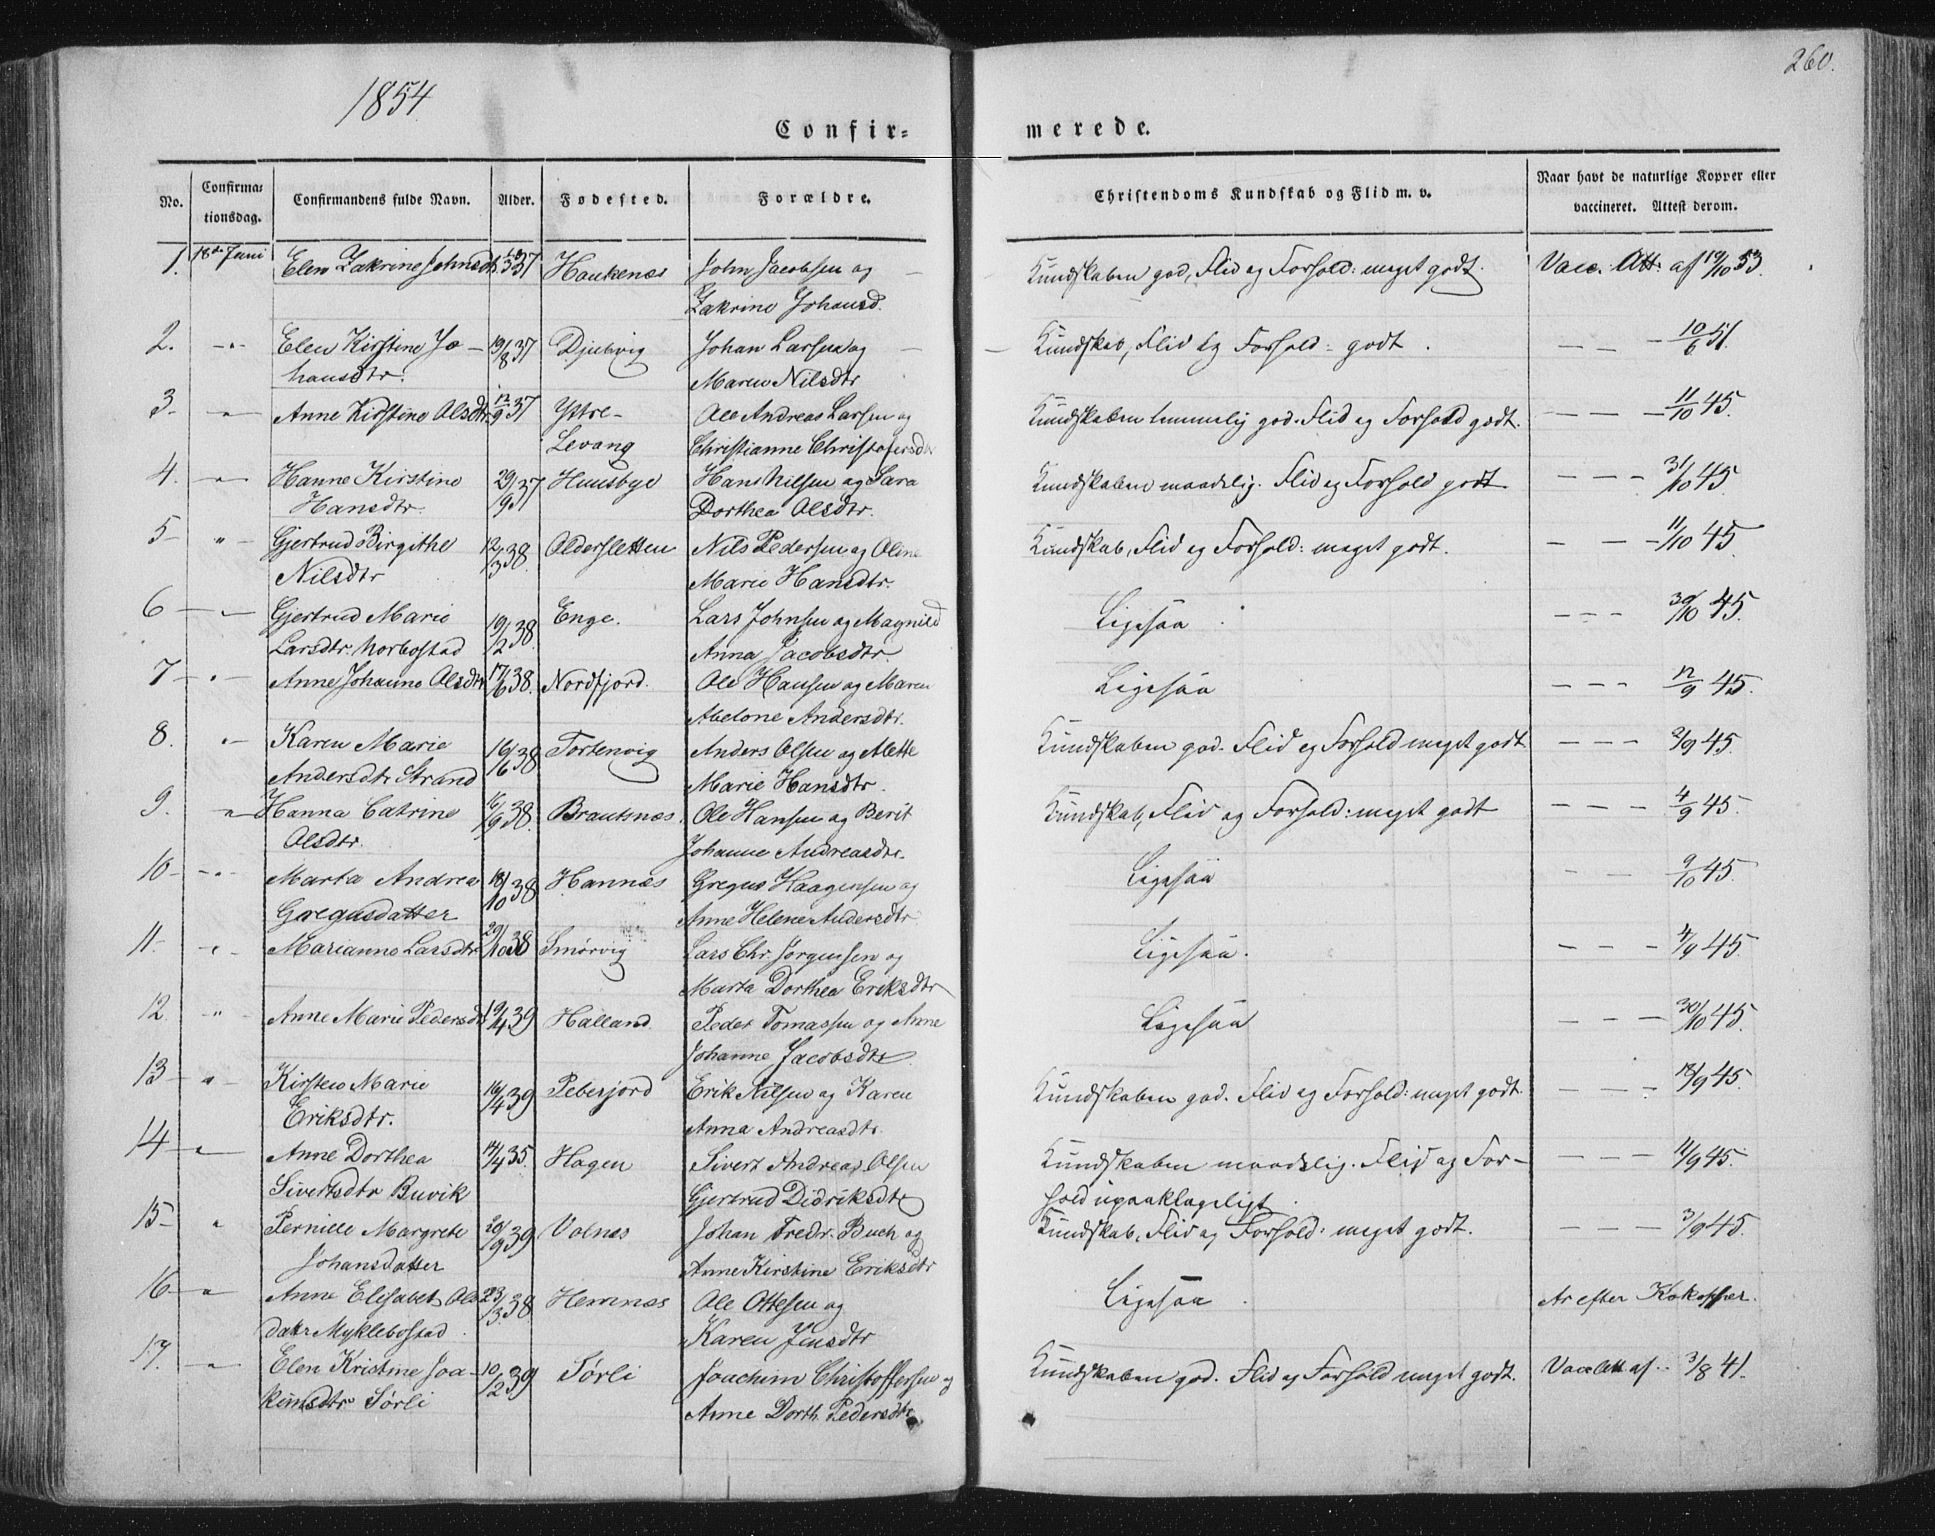 1854
260.
Confir= merede.
No. Confirma= tionsdag. Confirmandens fulde Navn. Alder. Fødested. Forældre. Christendoms Kundskab og Flid m. v. Naar havt de naturlige Kopper eller vaccineret. Attest derom.
1. 18de Juni Elen Zakrine Johnsdtr. 37 Haukenæs John Jacobsen og Kundskaben god, Flid og Forhold: meget godt. Vacc. Att. af 19/10 53.
Zakrine Johansd.
2. " Elen Kirstine Jo- 19/8 37 Djubvig Johan Larsen og Kundskab, Flid og Forhold: godt. — — — 10/6 51.
hansdtr. Maren Nilsdtr
3- " Anne Kirstine Olsdtr 12/9 37 Ystre- Ole Andreas Larsen og Kundskaben temmelig god. Flid og Forhold godt. — — — 11/10 45.
Levang Christianne Christofersdtr
4. " Hanne Kirstine 29/9 37 Huusbye Hans Nilsen og Sara Kundskaben maadelig. Flid og Forhold godt — — — 31/10 45.
Hansdtr. Dorthea Olsdtr.
5- " Gjertrud Birgithe 12/3 38. Oldersletten Nils Pedersen og Oline Kundskab, Flid og Forhold: meget godt. — — — 11/10 45.
Nilsdtr Marie Hansdtr.
6 " Gjertrud Marie 19/2 38. Enge. Lars Johnsen og Magnild Ligesaa. — — — 30/10 45.
Larsdtr. Norbostad Anna Jacobsdtr.
7 " Anne Johanne Olsdtr 17/6 38. Nordfjord. Ole Hansen og Maren Ligesaa — — — 12/9 45.
Abelone Andersdtr.
8. " Karen Marie 16/6 38 Tortenvig Anders Olsen og Alette Kundskaben god. Flid og Forhold meget godt — — — 2/9 45.
Andersdtr Strand Marie Hansdtr.
9. " Hanna Catrine 16/9 38. Brautsnæs. Ole Hansen og Berit Kundskab, Flid og Forhold: meget godt — — — 4/9 45.
Olsdtr. Johanne Andreasdtr.
10- " Marta Andrea 18/10 38 Hannæs Gregus Haagensen og Ligesaa 9/10 45.
Gregusdatter Anne Helene Andersdtr
11- " Marianne Larsdtr 29/10 38 Smörvig Lars Chr. Jörgensen og Ligesaa. — — — 4/9 45.
Marta Dorthea Eriksdtr
12. " Anne Marie Pedersdtr 19/4 39 Halland Peder Tomassen og Anne Ligesaa — — — 30/10 45.
Johanne Jacobsdtr
13- " Kirsten Marie 16/4 39 Peberjord Erik Nilsen og Karen Kundskaben god. Flid og Forhold: meget godt. — — — 18/9 45.
Eriksdtr. Anna Andreasdtr.
14 " Anne Dorthea 17/4 35. Hagen Sivert Andreas Olsen Kundskaben maadelig. Flid og For-
Sivertsdtr Buvik Gjertrud Didriksdtr hold upaaklageligt — — — 11/9 45.
15- " Pernille Margrete 20/9 39 Valnæs Johan Fredr. Buch og Kundskab, Flid og Forhold: meget godt. — — — 3/9 45.
Johansdatter Anne Kirstine Eriksdtr
16- " Anne Elisabet Ols- 23/3 38. Hemnæs Ole Ottesen og Ligesaa. Ar efter Kokopper.
datr Myklebostad. Karen Jensdtr
17. " Elen Kristine Joa- 10/2 39 Sørli Joachim Christoffersen og Kundskaben god. Flid og Forhold meget godt. Vacc Att af 3/8 41.
kimsdtr Sørli Anne Dorth. Pedersdtr